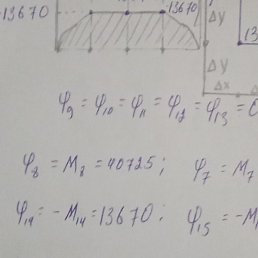 13670
13670
Δy
13
Δy
Δx
φ₉ = φ₁₀ = φ₁₁ = φ₁₂ = φ₁₃ = 0
φ₈ = M₈ = 40725; φ₇ = M₇
φ₁₄ = -M₁₄ = 13670; φ₁₅ = -M₁